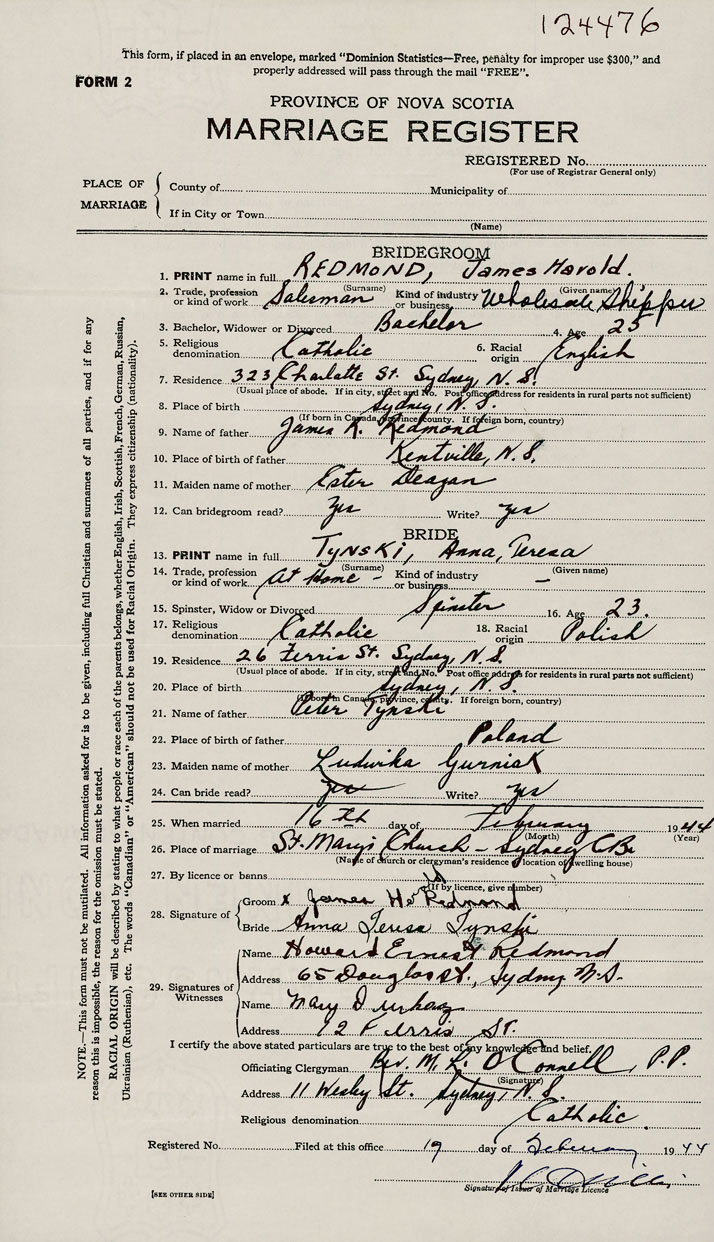 124476
This form, if placed in an envelope, marked "Dominion Statistics—Free, penalty for improper use $300," and
properly addressed will pass through the mail "FREE".
FORM 2
PROVINCE OF NOVA SCOTIA
MARRIAGE REGISTER
REGISTERED No.
(For use of Registrar General only)
PLACE OF MARRIAGE
County of
Municipality of
If in City or Town
(Name)
BRIDEGROOM
1. PRINT name in full REDMOND, James Harold.
(Surname) (Given name)
2. Trade, profession or kind of work Salesman Kind of industry or business Wholesale Shipper
3. Bachelor, Widower or Divorced Bachelor 4. Age 25
5. Religious denomination Catholic 6. Racial origin English
7. Residence 323 Charlotte St. Sydney, N.S.
(Usual place of abode. If in city, street and No. Post office address for residents in rural parts not sufficient)
8. Place of birth Sydney, N.S.
(If born in Canada, province, county. If foreign born, country)
9. Name of father James R. Redmond
10. Place of birth of father Kentville, N.S.
11. Maiden name of mother Ester Deagan
12. Can bridegroom read? Yes Write? Yes
BRIDE
13. PRINT name in full TYNSKI, Anna, Teresa
(Surname) (Given name)
14. Trade, profession or kind of work At Home - Kind of industry or business —
15. Spinster, Widow or Divorced Spinster 16. Age 23.
17. Religious denomination Catholic 18. Racial origin Polish
19. Residence 26 Ferris St. Sydney, N.S.
(Usual place of abode. If in city, street and No. Post office address for residents in rural parts not sufficient)
20. Place of birth Sydney, N.S.
(If born in Canada, province, county. If foreign born, country)
21. Name of father Peter Tynski
22. Place of birth of father Poland
23. Maiden name of mother Ludwika Gurniak
24. Can bride read? Yes Write? Yes
25. When married 16th day of February 1944
(Month) (Year)
26. Place of marriage St. Mary's Church - Sydney CB.
(Name of church or clergyman's residence or location of dwelling house)
27. By licence or banns
(If by licence, give number)
28. Signature of
Groom x James H. Redmond
Bride Anna Teresa Tynski
29. Signatures of Witnesses
Name Howard Ernest Redmond
Address 65 Douglas St., Sydney N.S.
Name Mary
Address 12 Ferris St.
I certify the above stated particulars are true to the best of my knowledge and belief.
Officiating Clergyman Rev. M. K. O'Connell, P.P.
(Signature)
Address 11 Wesley St. Sydney, N.S.
Religious denomination Catholic.
Registered No. Filed at this office 19 day of February 1944
Signature of Issuer of Marriage Licence
[SEE OTHER SIDE]
NOTE.—This form must not be mutilated. All information asked for is to be given, including full Christian and surnames of all parties, and if for any
reason this is impossible, the reason for the omission must be stated.
RACIAL ORIGIN will be described by stating to what people or race each of the parents belongs, whether English, Irish, Scottish, French, German, Russian,
Ukrainian (Ruthenian), etc. The words "Canadian" or "American" should not be used for Racial Origin. They express citizenship (nationality).